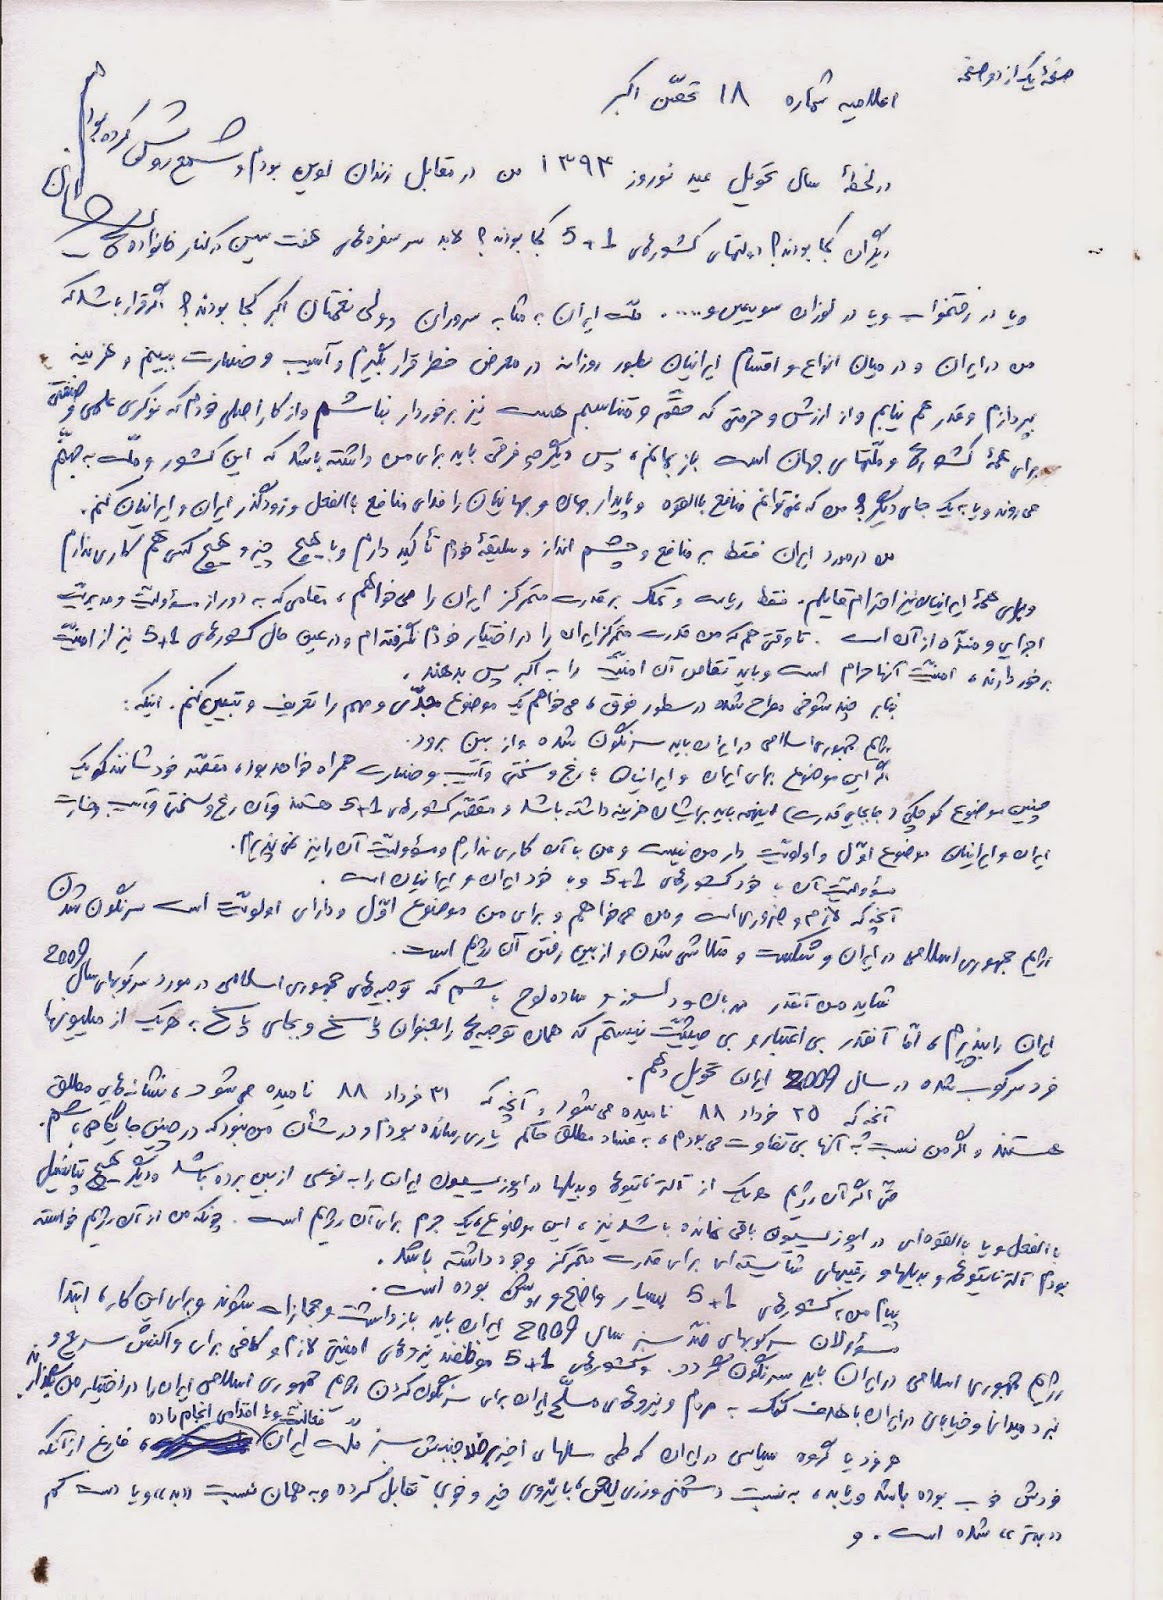 صفحهٔ یک از دو صفحه
اعلامیه شماره ۱۸ تحصّن اکبر
در لحظهٔ سال تحویل عید نوروز ۱۳۹۳ من در مقابل زندان اوین بودم و شمع روشن کرده بودم
دیگران کجا بودند؟ دولتهای کشورهای 5+1 کجا بودند؟ لابد سر سفره‌های هفت سین در کنار خانواده
و یا در رختخواب و یا در لوزان سوییس و..... ملّت ایران به مثابه سروران و ولی نعمتان اکبر کجا بودند؟ اگر قرار باشد که
من در ایران و در میان انواع و اقسام ایرانیان بطور روزانه در معرض خطر قرار بگیرم و آسیب و خسارت ببینم و هزینه
بپردازم و قدر هم نیابم و از ارزش و حرمتی که حقّم و متناسبم هست نیز برخوردار نباشم و از کار اصلی خودم که نوکری علمی و صنعتی
برای همهٔ کشورها و ملّتهای جهان است باز بمانم، پس دیگر چه فرقی باید برای من داشته باشد که این کشور و ملّت به جهنّم
می‌روند و یا به یک جای دیگر؟ من که نمی‌توانم منافع بالقوّه و پایدار جهان و جهانیان را فدای منافع بالفعل و زودگذر ایران و ایرانیان کنم.
من در مورد ایران فقط بر منافع و چشم انداز و سلیقهٔ خودم تأکید دارم و با هیچ چیز و هیچ کسی هم کاری ندارم
و برای همهٔ ایرانیان نیز احترام قایلم. فقط ریاست و تملک بر قدرت متمرکز ایران را می‌خواهم، مقامی که به دور از مسؤولیت و مدیریت
اجرایی و منزّه از آن است. تا وقتی هم که من قدرت متمرکز ایران را در اختیار خودم نگرفته‌ام و در عین حال کشورهای 5+1 نیز از امنیّت
برخوردارند، امنیّت آنها حرام است و باید تقاص آن امنیّت را به اکبر پس بدهند.
بنابر چند شوخی مطرح شده در سطور فوق، می‌خواهم یک موضوع جدّی و مهم را تعریف و تبیین کنم. اینکه:
رژیم جمهوری اسلامی در ایران باید سرنگون شده و از بین برود.
اگر این موضوع برای ایران و ایرانیان با رنج و سختی و آسیب و خسارت همراه خواهد بود، مقصّر خودشانند که یک
چنین موضوع کوچکی (جابجایی قدرت) اینهمه باید برایشان هزینه داشته باشد و مقصّر کشورهای 5+1 هستند و آن رنج و سختی و آسیب و خسارت
ایران و ایرانیان موضوع اوّل و اولویّت دار من نیست و من با آن کاری ندارم و مسؤولیّت آن را نیز نمی‌پذیرم.
مسؤولیّت آن با خود کشورهای 5+1 و با خود ایران و ایرانیان است.
آنچه که لازم و ضروری است و من می‌خواهم و برای من موضوع اوّل و دارای اولویّت است سرنگون شدن
رژیم جمهوری اسلامی در ایران و شکست و متلاشی شدن و از بین رفتن آن رژیم است.
شاید من آنقدر مهربان و دلسوز و ساده لوح باشم که توجیه‌های جمهوری اسلامی در مورد سرکوبهای سال 2009
ایران را بپذیرم، امّا آنقدر بی اعتبار و بی حیثیّت نیستم که همان توجیه‌ها را بعنوان پاسخ و بجای پاسخ به هر یک از میلیونها
فرد سرکوب شده در سال 2009 ایران تحویل دهم.
آنچه که ۲۵ خرداد ۸۸ نامیده می‌شود و آنچه که ۳۱ خرداد ۸۸ نامیده می‌شود، نشانه‌هایی مطلق
هستند و اگر من نسبت به آنها بی تفاوت می‌بودم، به فساد مطلق حاکم یاری رسانده بودم و در شأن من نبود که در چنین جایگاهی باشم.
حتّی اگر آن رژیم هر یک از آلترناتیوها و بدیلها در اپوزیسیون ایران را به نوعی از بین برده باشد و دیگر هیچ پتانسیل
بالفعل و یا بالقوّه‌ای در اپوزیسیون باقی نمانده باشد نیز، این موضوع، یک جرم برای آن رژیم است. چونکه من از آن رژیم خواسته
بودم آلترناتیوها و بدیلها و رقیبهای شایسته‌ای برای قدرت متمرکز وجود داشته باشد.
پیام من به کشورهای 5+1 بسیار واضح و روشن بوده است.
مسؤولان سرکوبهای ضدّ سبز سال 2009 ایران باید بازداشت و مجازات شوند و برای این کار، ابتدا
رژیم جمهوری اسلامی در ایران باید سرنگون گردد. و کشورهای 5+1 موظفند نیروهای امنیتی لازم و کافی برای واکنش سریع و
نبرد میدانی و خیابانی در ایران با هدف کمک به مردم و نیروهای مسلّح ایران برای سرنگون کردن رژیم جمهوری اسلامی ایران را در اختیار من بگذارند
هر فرد یا گروه سیاسی در ایران که طی سالهای اخیر بر ضد جنبش سبز ملّت ایران فعالیّت و یا اقدامی انجام داده، فارغ از آنکه
خودش خوب بوده باشد و یا بد، به نسبت دشمنی ورزی‌اش، با نیروی خیر و خوبی تقابل کرده و به همان نسبت «بد» و یا دست کم
«بدتر» شده است. و